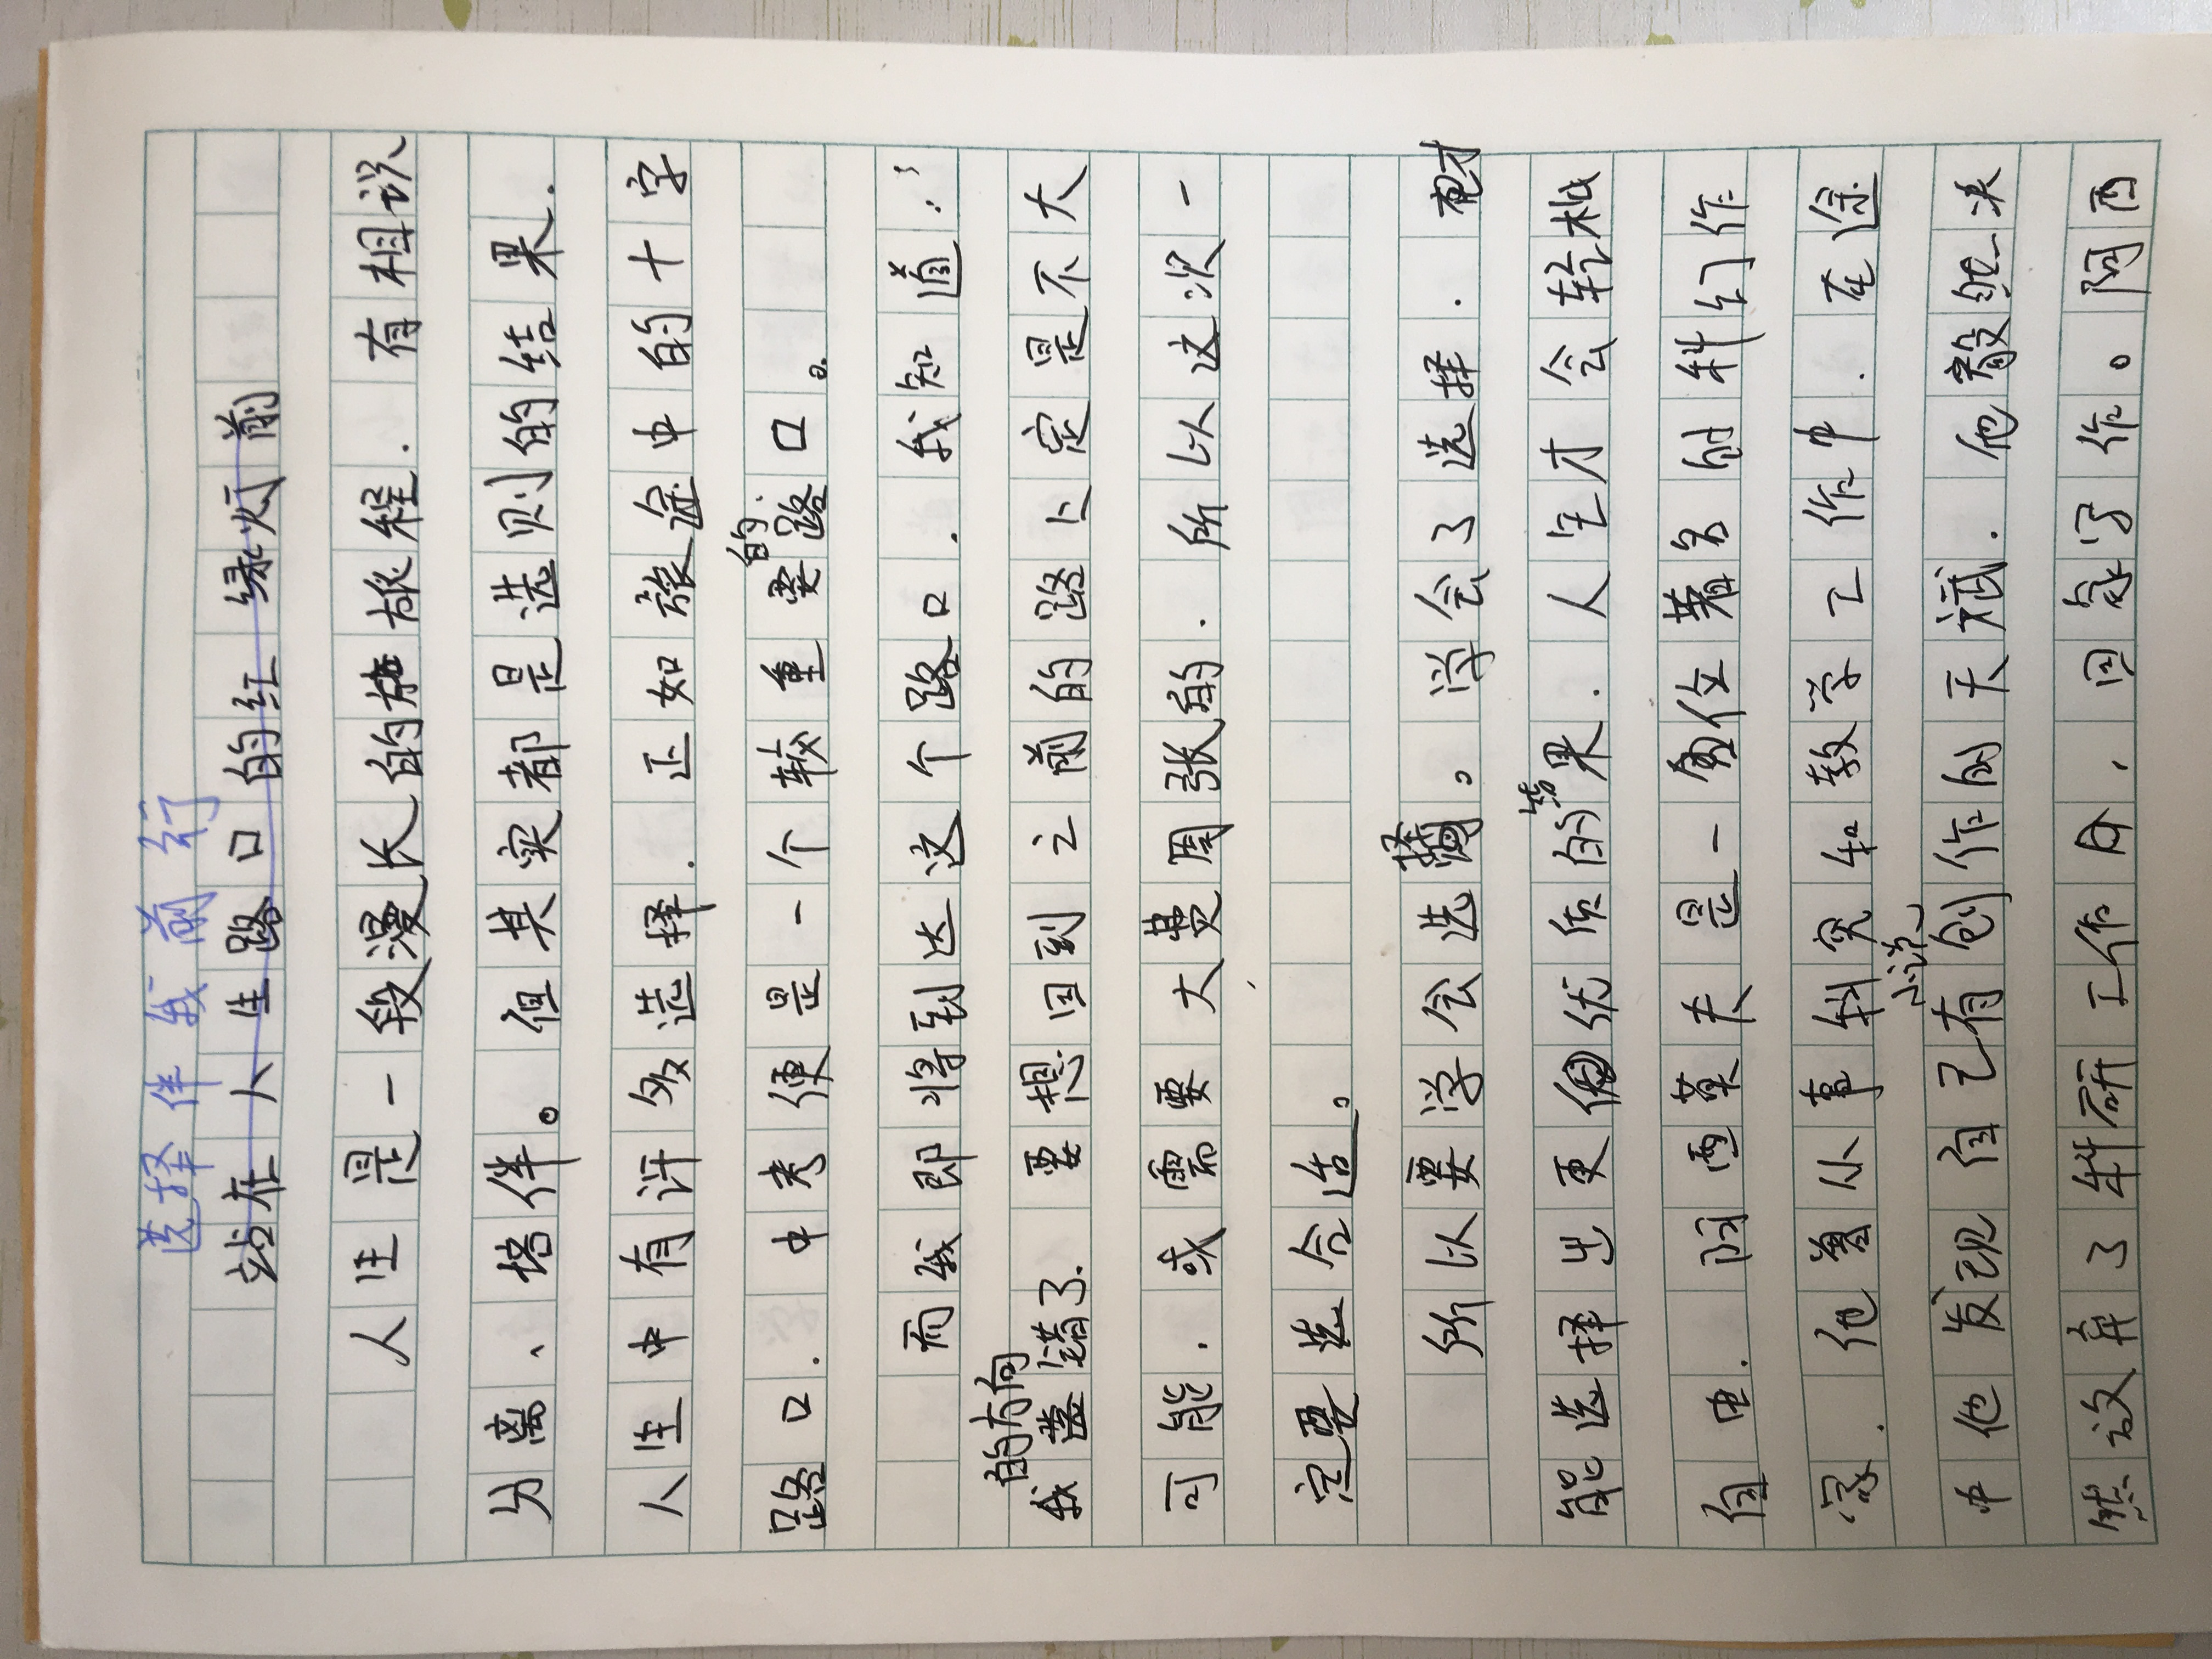 选择伴我前行
站在人生路口的红绿灯前
人生是一段漫长的旅程．有相识
分离、陪伴。但其实都是选则的结果．
人生中有许多选择．正如旅途中的十字
路口．中考便是一个较重要的路口。
而我即将到达这个路口．我知道：
我的方向错了．要想回到之前的路上定是不大
可能．或需要大费周张的．所以这次一
定要选合适。
所以要学会选择。学会了选择．才
能选择出更优质的结果．人生才会轻松
自由．阿西莫夫是一位著名的科幻作
家．他曾从事科究和教学工作中．在途
中他发现自己有创作小说的天赋．他毅然决
然放弃了科研工作后，回家写作。阿西